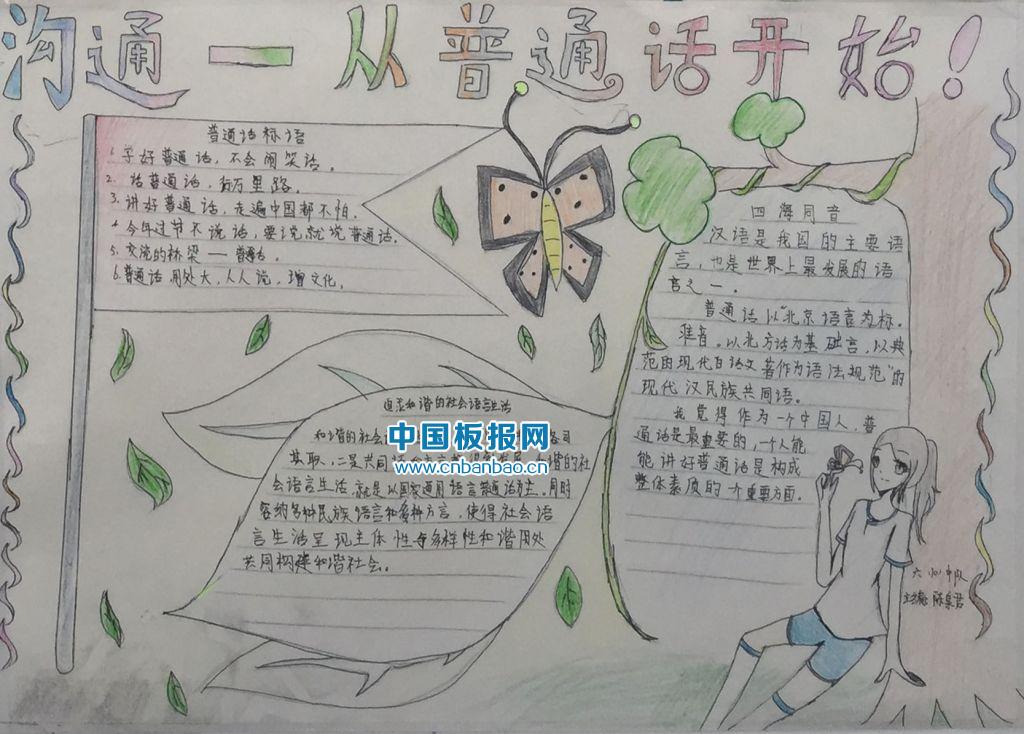 沟通一从普通话开始!
普通话标语
1. 学好普通话,不会闹笑话。
2. 话普通话,行万里路。
3. 讲好普通话,走遍中国都不怕.
4. 今年过节不说话,要说就说普通话.
5. 交流的桥梁——普通话.
6. 普通话用处大,人人说,增文化.
四海同音
汉语是我国的主要语
言,也是世界上最发展的语
言之一.
普通话以"北京语音为标.
准音.以北方话为基础言,以典
范的现代白话文著作为语法规范"的
现代汉民族共同语。
我觉得作为一个中国人,普
通话是最重要的,一个人能
能讲好普通话是构成
整体素质的一个重要方面.
和谐的社会语言生活
和谐的社会
中国板报网
www.cnbanbao.cn
其职,二是共同
谐的社
会语言生活.就是以国家通用语言普通话为主.同时
容纳多种民族语言和多种方言,使得社会语
言生活呈现主体性与多样性和谐用处
共同构建和谐社会。
中队